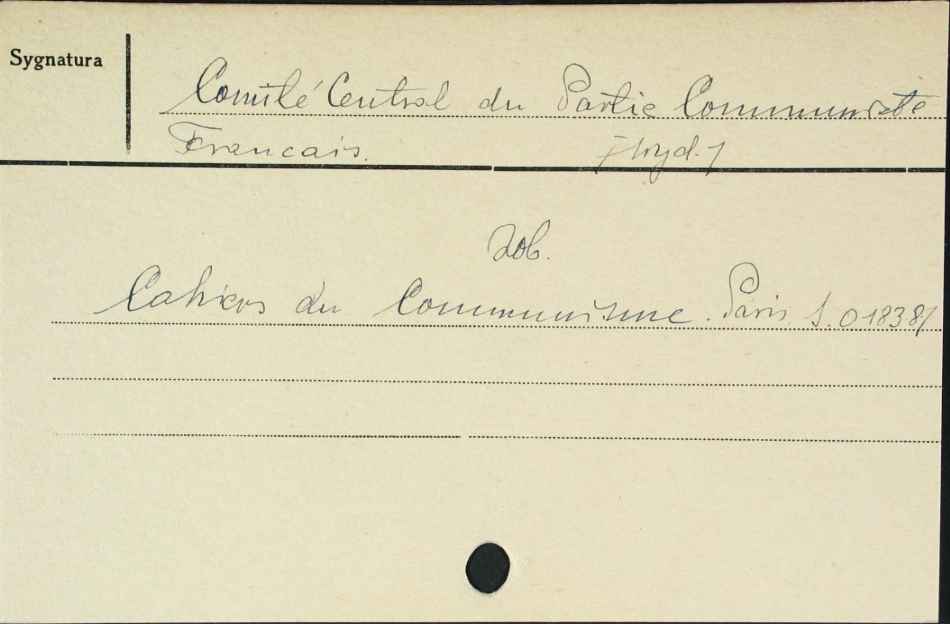 Sygnatura
Comité Central du Partie Communiste
Francais. /wyd./
Zob.
Cahiers du Communisme. Paris. S. 01838/